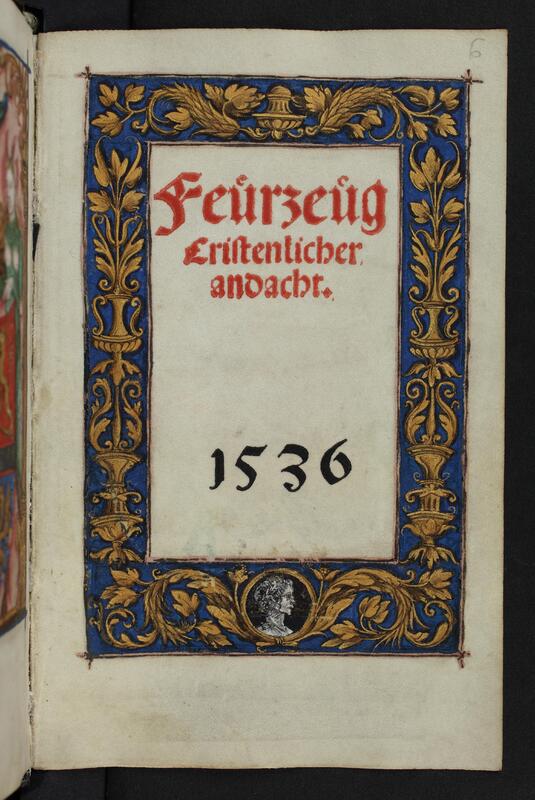 6
Feůrzeůg
Cristenlicher
andacht.
1536